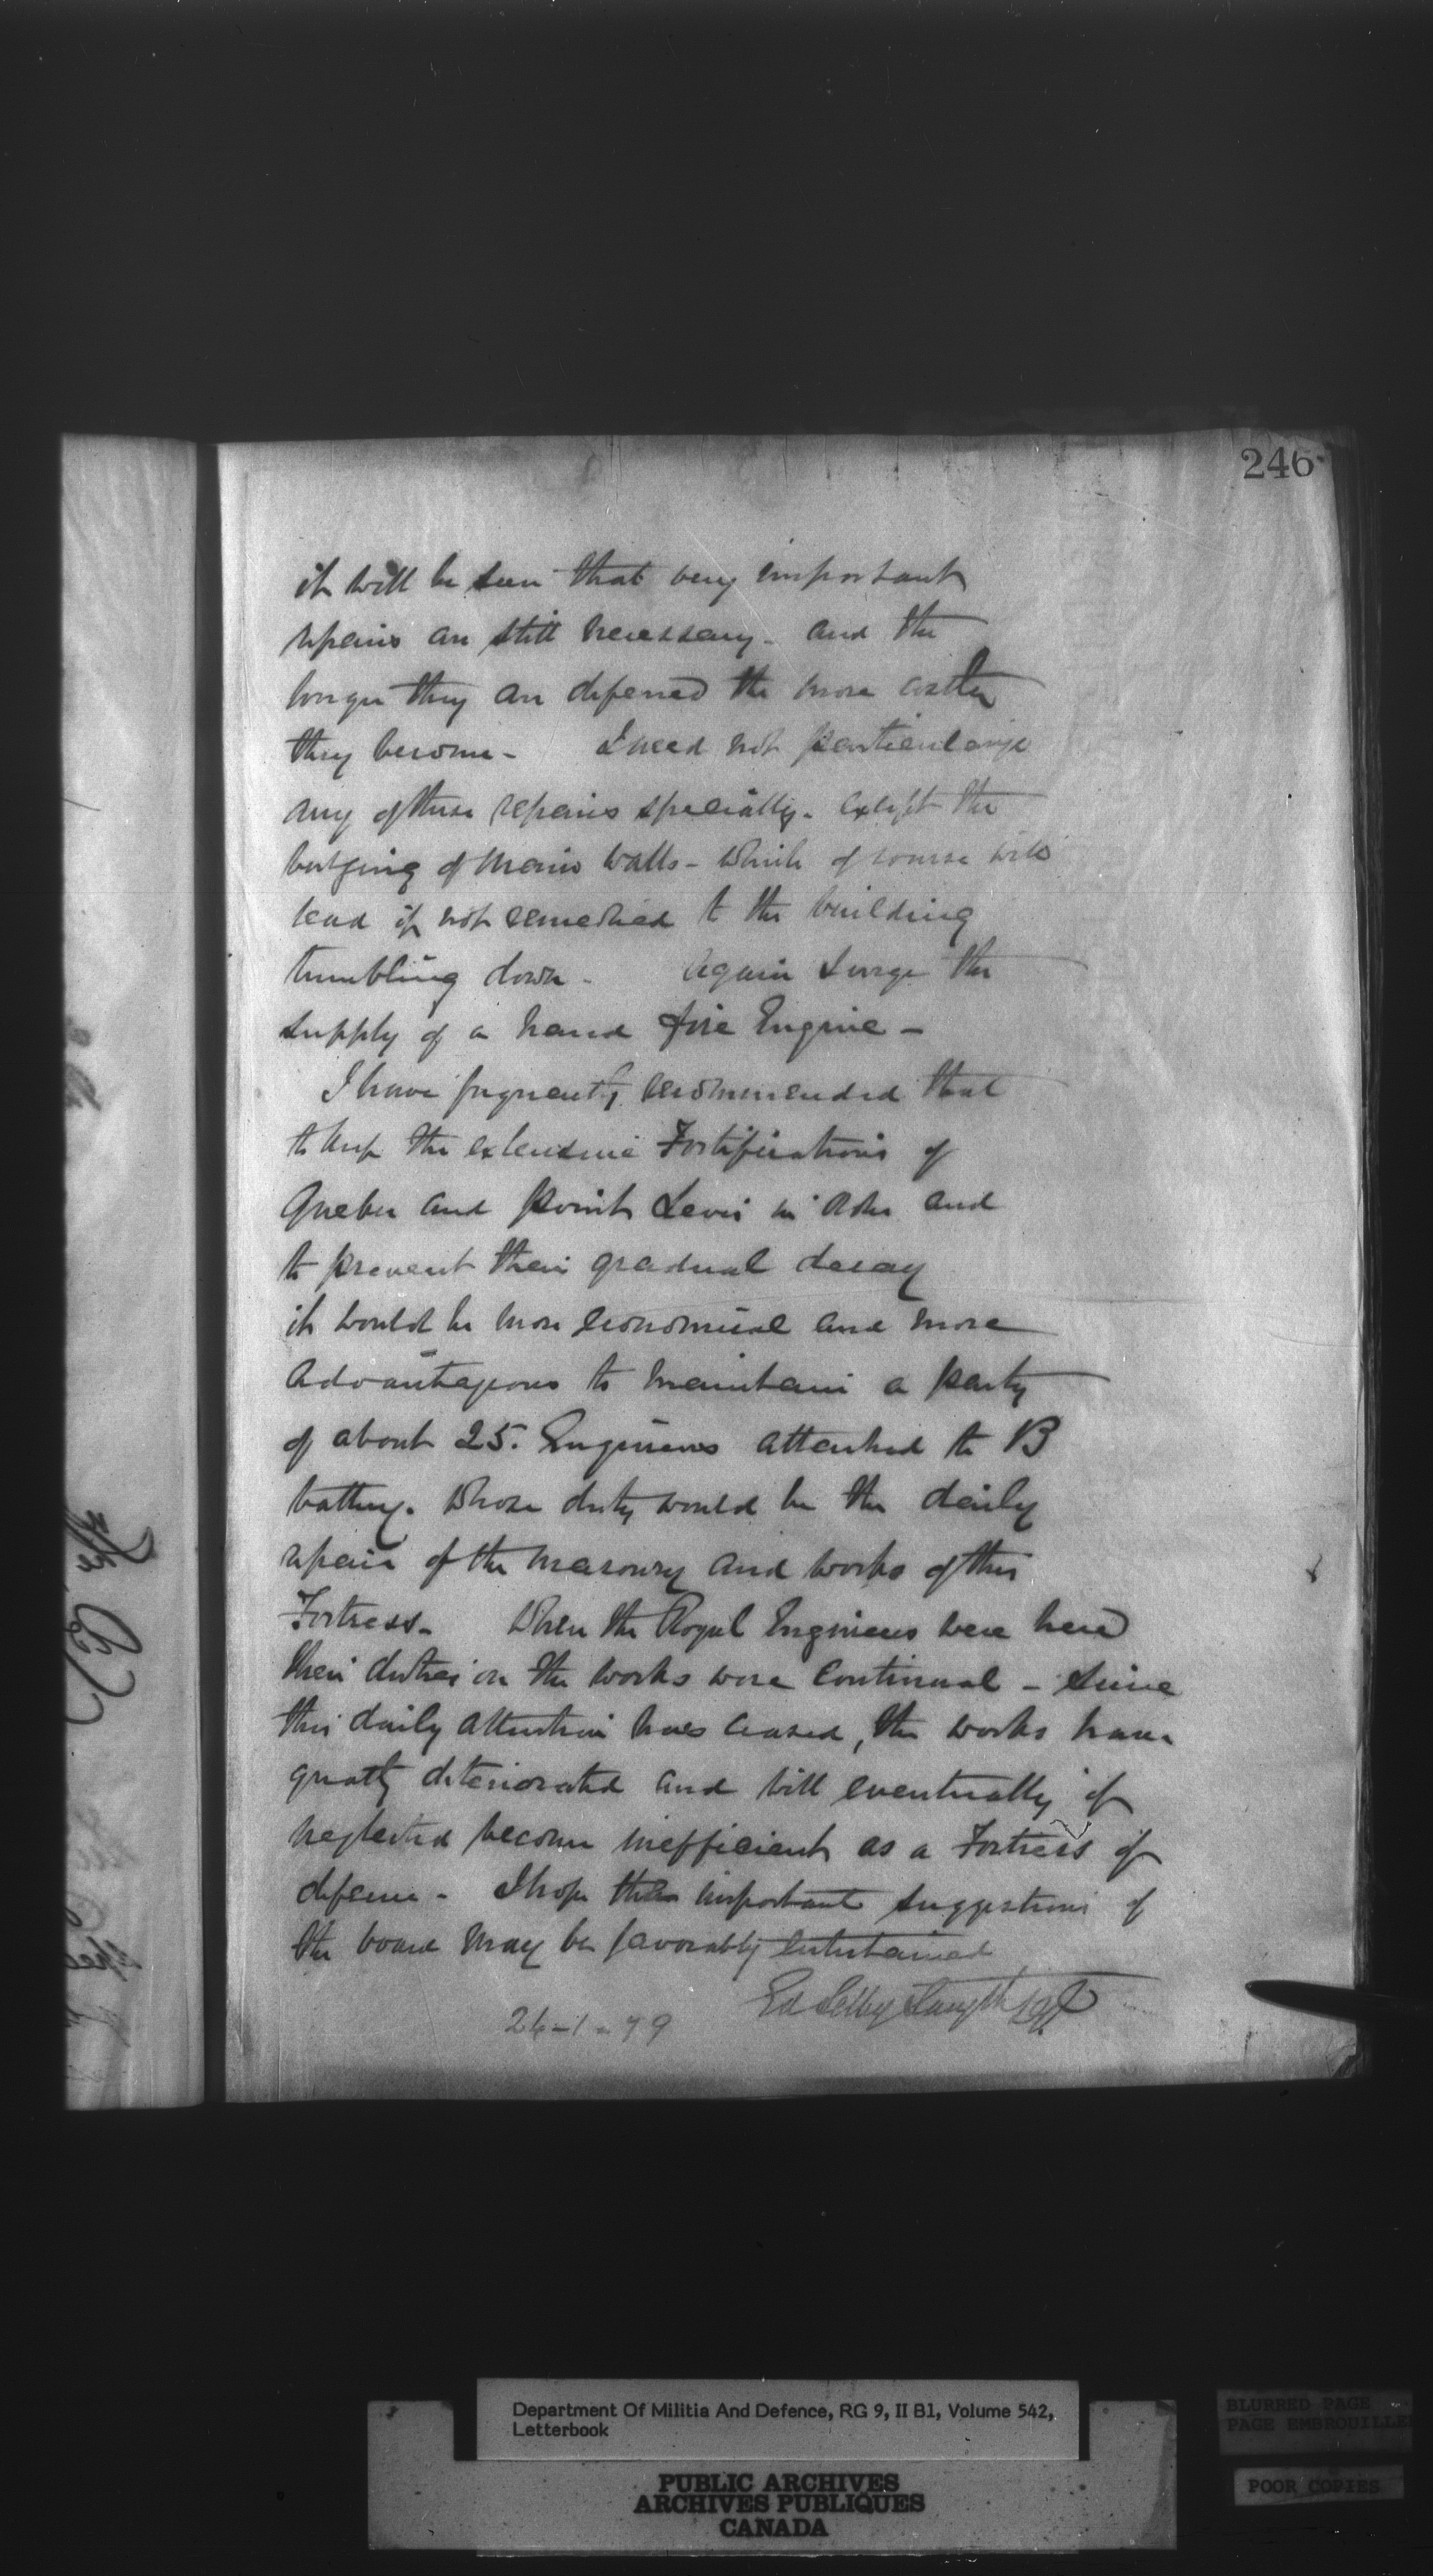 246
it will be seen that very important
repairs are still necessary - and the
longer they are deferred the more costly
they become - I need not particularize
any of these repairs specially - except the
bulging of main walls - which of course will
lead if not remedied to the building
tumbling down - Again I urge the
supply of a hand fire Engine -
I have frequently recommended that
to keep the extensive Fortifications of
Quebec and Point Levis in order and
to prevent their gradual decay
it would be more economical and more
advantageous to maintain a party
of about 25. Engineers attached to B
battery. Whose duty would be the daily
repair of the masonry and works of this
Fortress - When the Royal Engineers were here
their duties on the works were continual - Since
this daily attention has ceased, the works have
greatly deteriorated and will eventually if
neglected become inefficient as a Fortress of
defence - I hope these important suggestions of
the board may be favorably entertained
Ed Selby Smyth
24-1-79
Department Of Militia And Defence, RG 9, II B1, Volume 542,
Letterbook
PUBLIC ARCHIVES
ARCHIVES PUBLIQUES
CANADA
BLURRED PAGE
PAGE EMBROUILLE
POOR COPIES